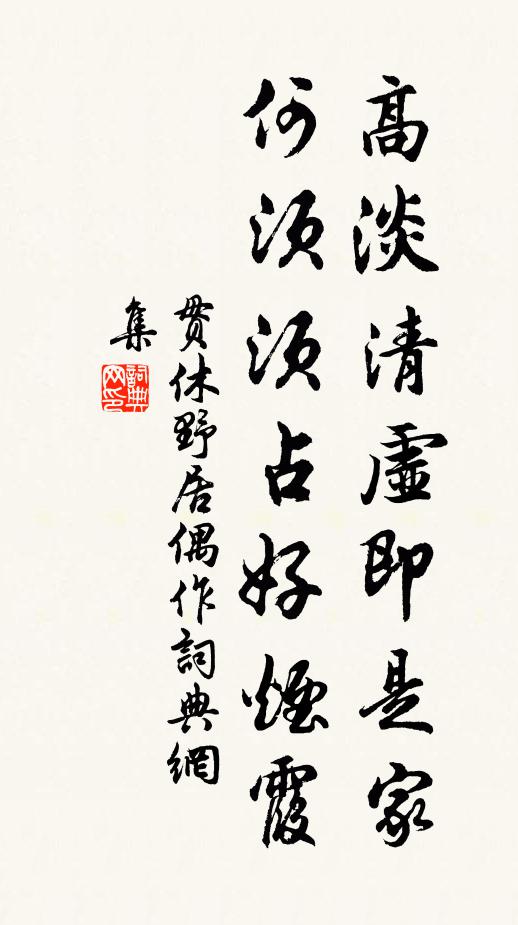 高淡清虛即是家
何須須占好煙霞
貫休野居偶作詞典網
集
詞典网印